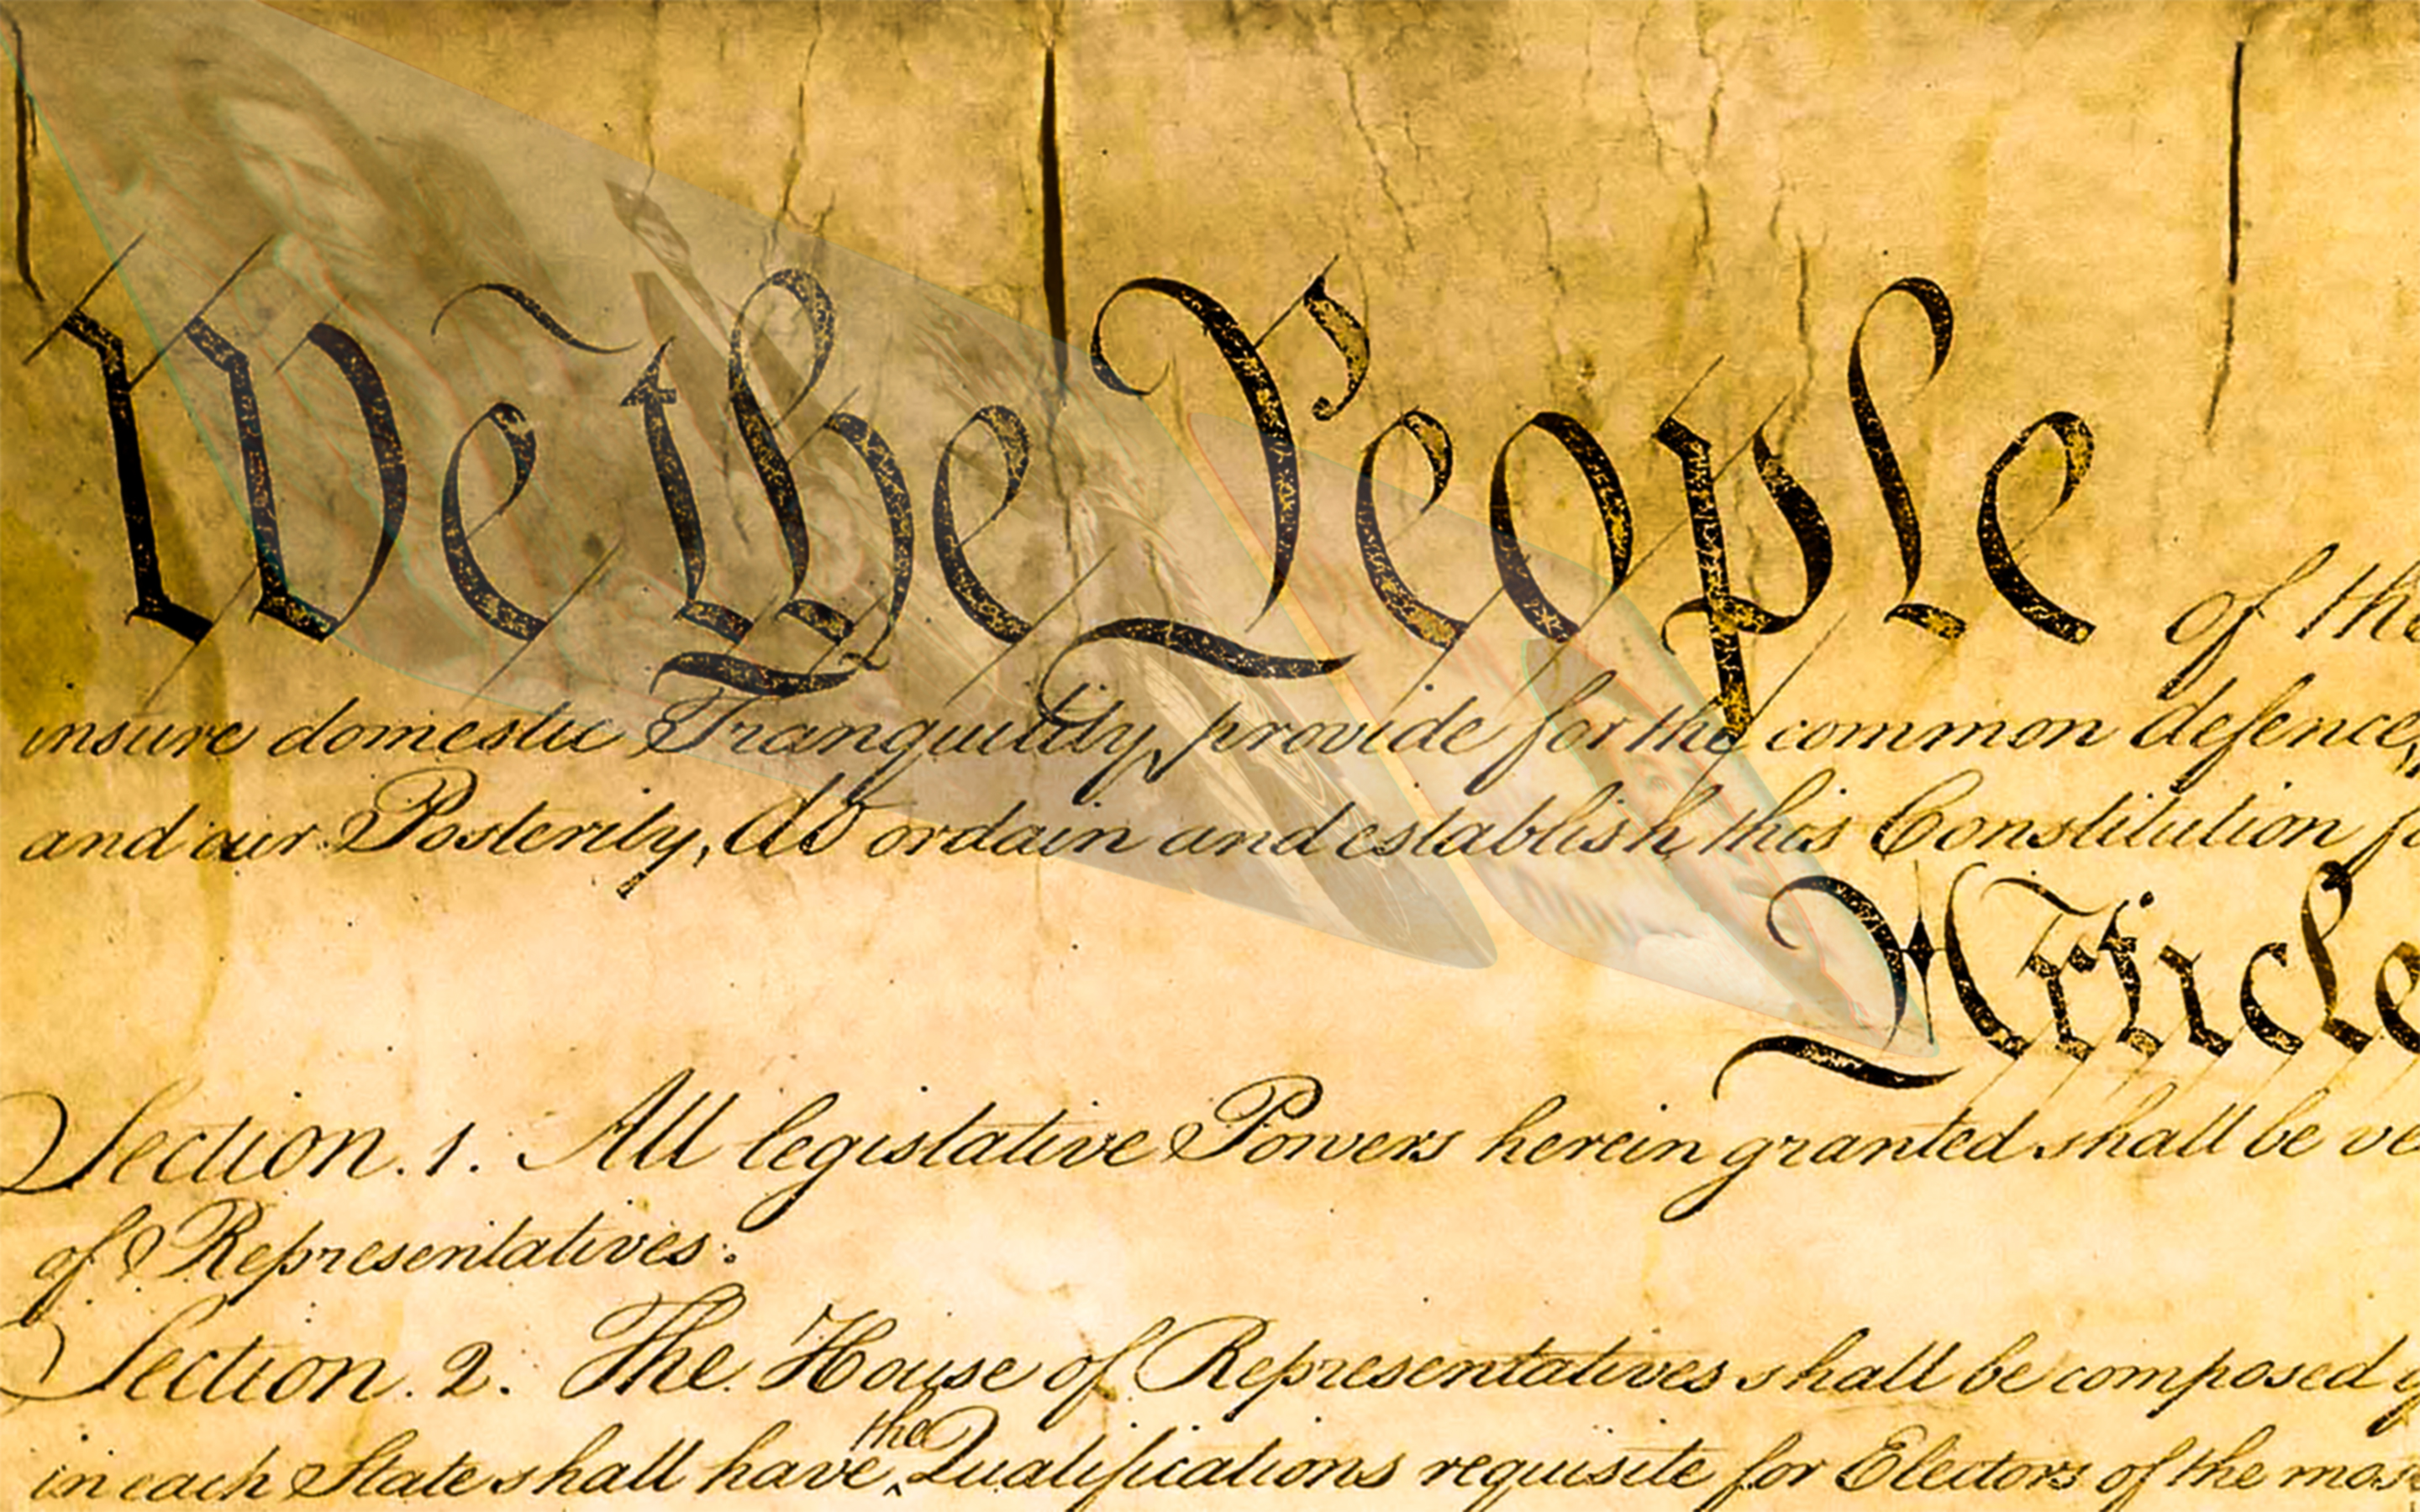 We the People of the
insure domestic Tranquility, provide for the common defence,
and our Posterity, do ordain and establish this Constitution
Article
Section. 1. All legislative Powers herein granted shall be
of Representatives.
Section. 2. The House of Representatives shall be composed
in each State shall have the Qualifications requisite for Electors of the